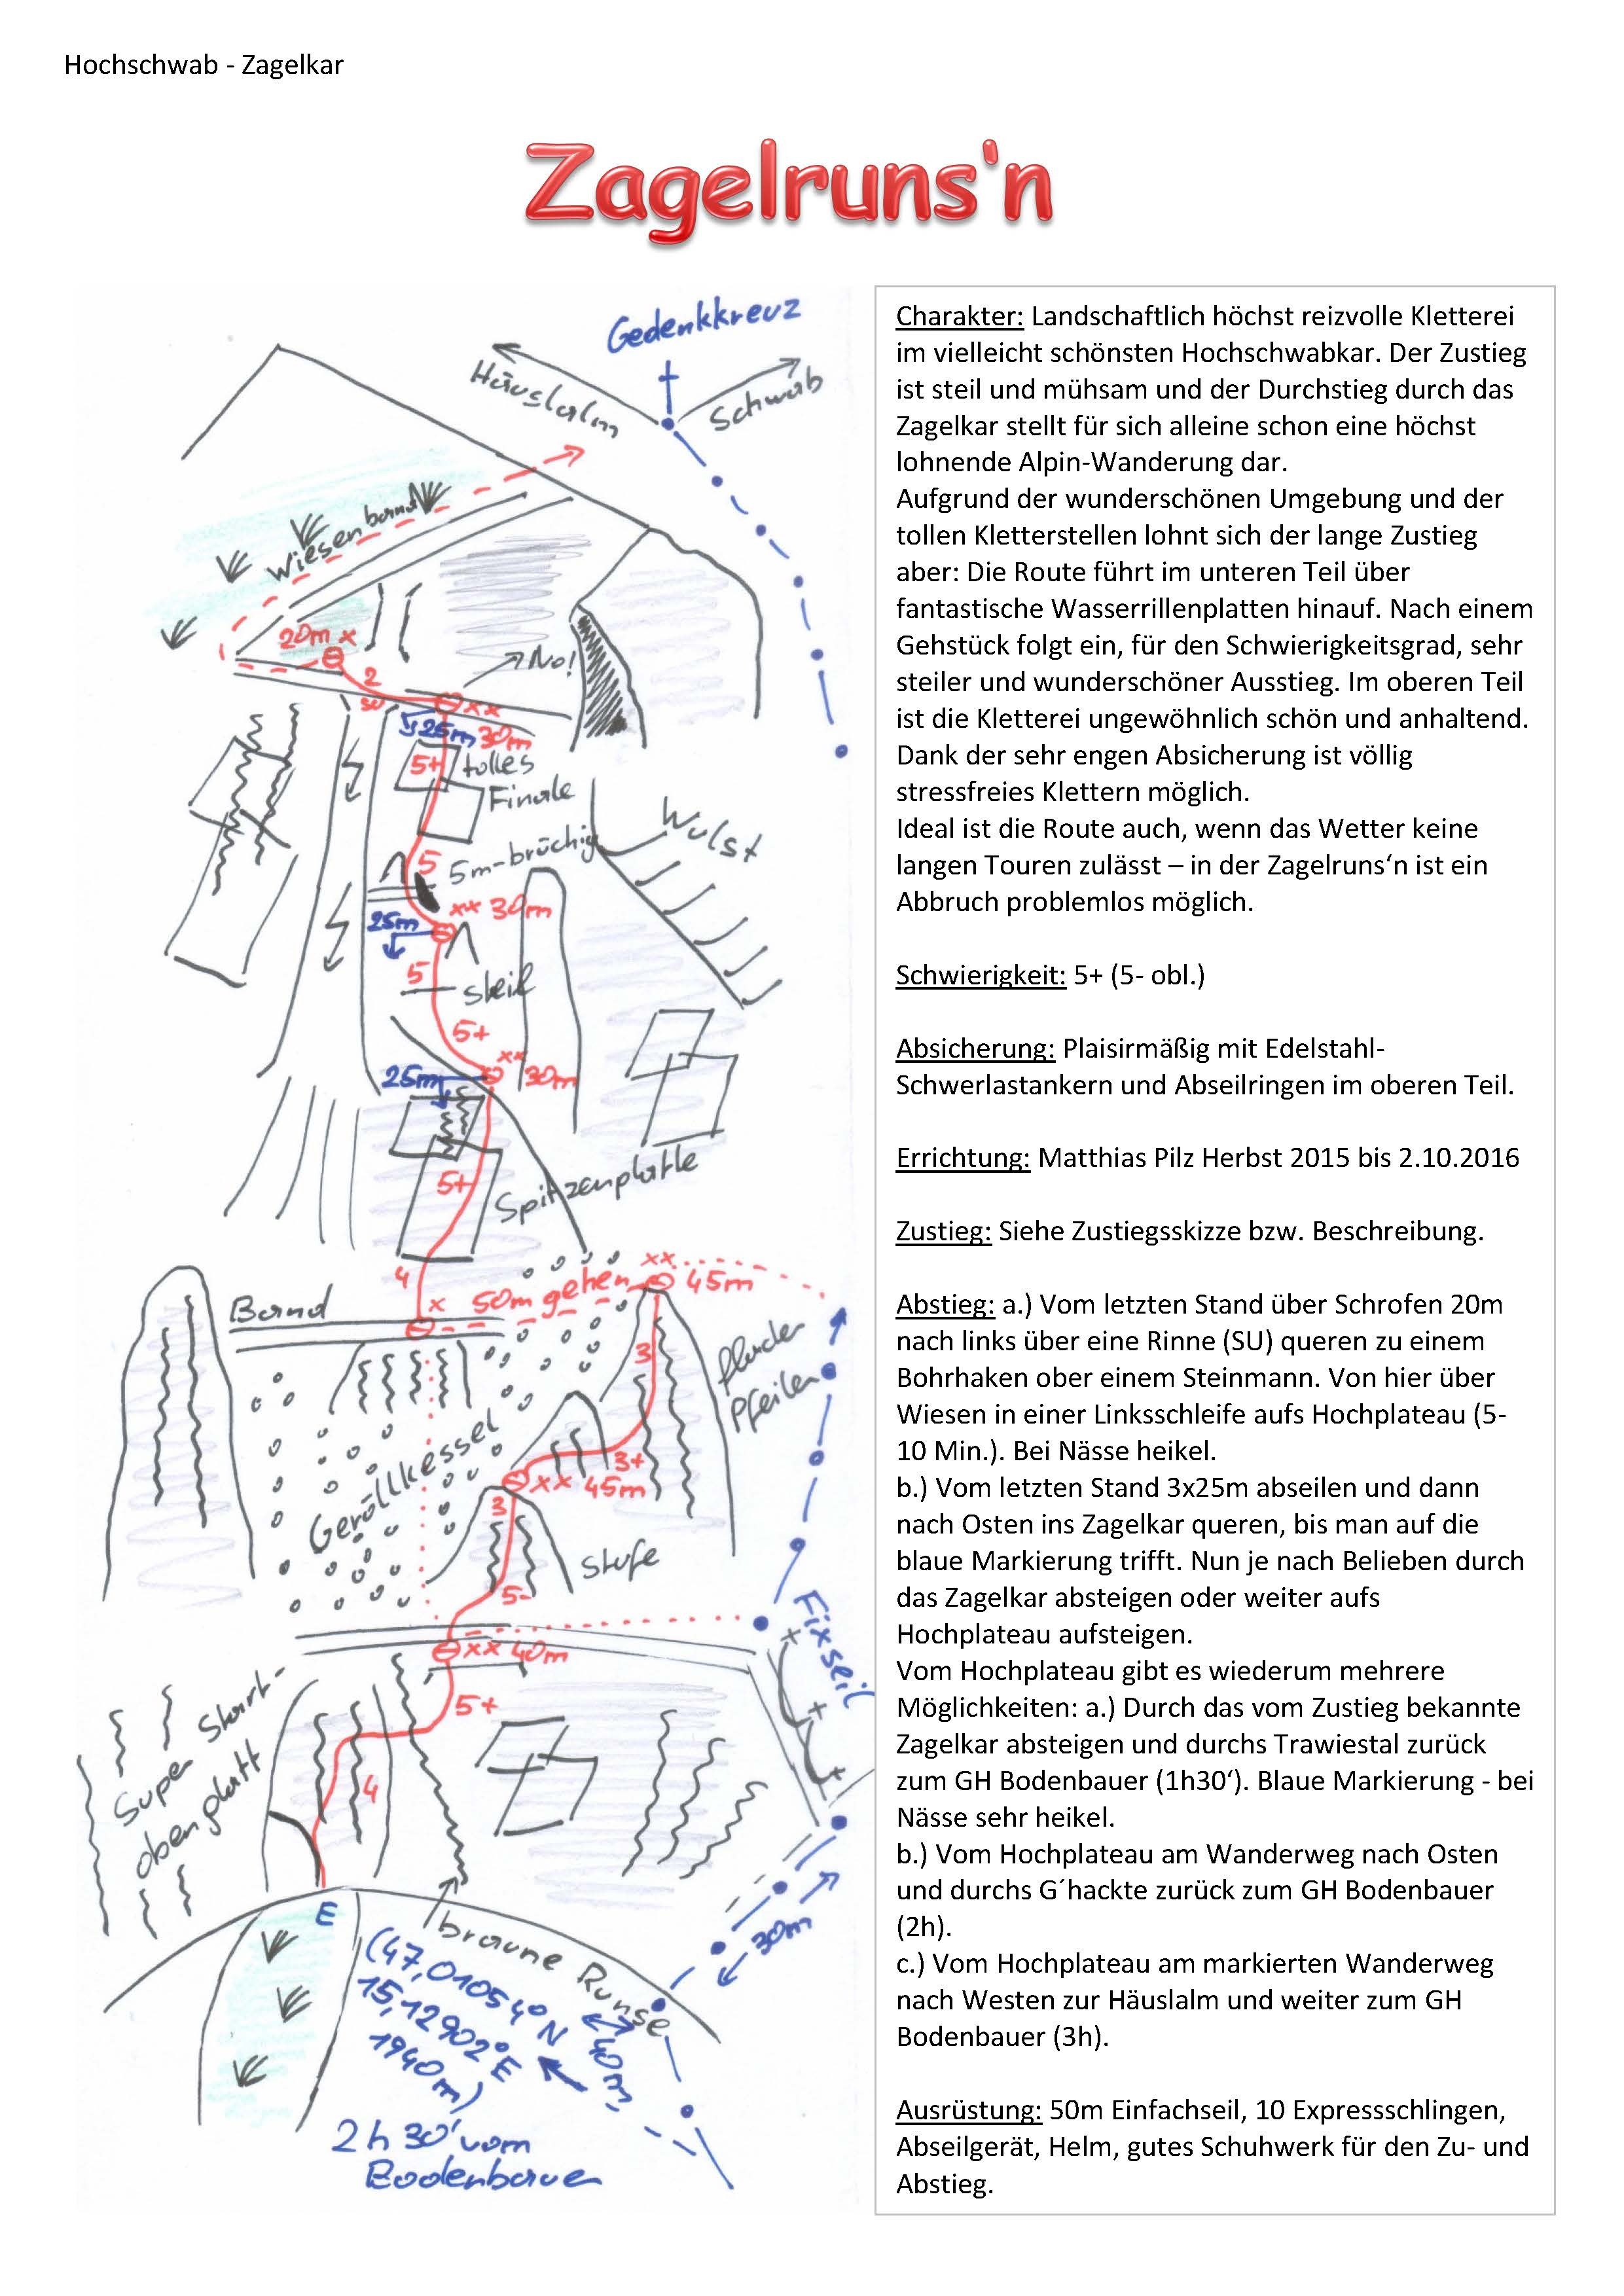 Hochschwab - Zagelkar
Zagelruns'n
Gedenkkreuz
Häuslalm
Schwab
Wiesenband
20m x
2
SU
No!
xx
25m
30m
5+
tolles
Finale
Wulst
5
5m-brüchig
xx 30m
25m
5
steil
5+
xx
25m
30m
5+
Spitzenplatte
4
xx
45m
x 50m gehen
Band
3
Pfeiler
Geröllkessel
3+
xx 45m
3
Stufe
5-
Fixseil
xx 40m
5+
Super Start-
obenplatt
4
E
braune Runse
30m
(47,01054°N
15,12902°E
1940m)
40m
2h 30' vom
Bodenbauer
Charakter: Landschaftlich höchst reizvolle Kletterei
im vielleicht schönsten Hochschwabkar. Der Zustieg
ist steil und mühsam und der Durchstieg durch das
Zagelkar stellt für sich alleine schon eine höchst
lohnende Alpin-Wanderung dar.
Aufgrund der wunderschönen Umgebung und der
tollen Kletterstellen lohnt sich der lange Zustieg
aber: Die Route führt im unteren Teil über
fantastische Wasserrillenplatten hinauf. Nach einem
Gehstück folgt ein, für den Schwierigkeitsgrad, sehr
steiler und wunderschöner Ausstieg. Im oberen Teil
ist die Kletterei ungewöhnlich schön und anhaltend.
Dank der sehr engen Absicherung ist völlig
stressfreies Klettern möglich.
Ideal ist die Route auch, wenn das Wetter keine
langen Touren zulässt – in der Zagelruns'n ist ein
Abbruch problemlos möglich.
Schwierigkeit: 5+ (5- obl.)
Absicherung: Plaisirmäßig mit Edelstahl-
Schwerlastankern und Abseilringen im oberen Teil.
Errichtung: Matthias Pilz Herbst 2015 bis 2.10.2016
Zustieg: Siehe Zustiegsskizze bzw. Beschreibung.
Abstieg: a.) Vom letzten Stand über Schrofen 20m
nach links über eine Rinne (SU) queren zu einem
Bohrhaken ober einem Steinmann. Von hier über
Wiesen in einer Linksschleife aufs Hochplateau (5-
10 Min.). Bei Nässe heikel.
b.) Vom letzten Stand 3x25m abseilen und dann
nach Osten ins Zagelkar queren, bis man auf die
blaue Markierung trifft. Nun je nach Belieben durch
das Zagelkar absteigen oder weiter aufs
Hochplateau aufsteigen.
Vom Hochplateau gibt es wiederum mehrere
Möglichkeiten: a.) Durch das vom Zustieg bekannte
Zagelkar absteigen und durchs Trawiestal zurück
zum GH Bodenbauer (1h30'). Blaue Markierung - bei
Nässe sehr heikel.
b.) Vom Hochplateau am Wanderweg nach Osten
und durchs G´hackte zurück zum GH Bodenbauer
(2h).
c.) Vom Hochplateau am markierten Wanderweg
nach Westen zur Häuslalm und weiter zum GH
Bodenbauer (3h).
Ausrüstung: 50m Einfachseil, 10 Expressschlingen,
Abseilgerät, Helm, gutes Schuhwerk für den Zu- und
Abstieg.